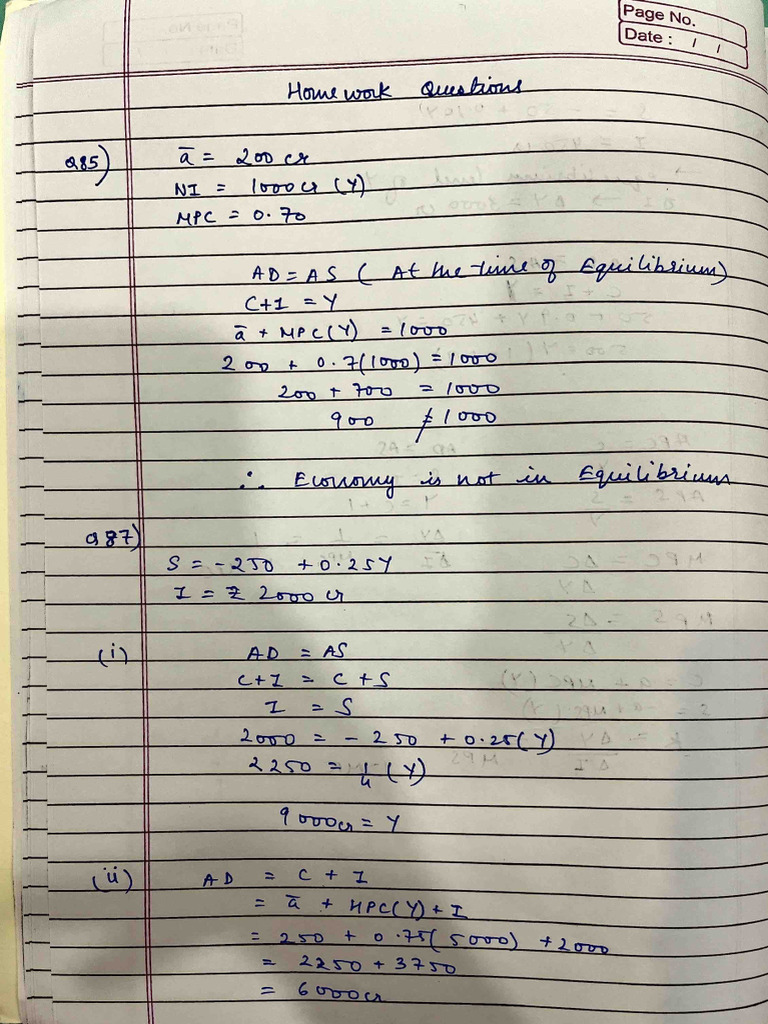 Page No.
Date : / /
Homework Questions
Q85) ā = 200 cr
NI = 1000cr (Y)
MPC = 0.70
AD = AS ( At the time of Equilibrium)
C+I = Y
ā + MPC(Y) = 1000
200 + 0.7(1000) = 1000
200 + 700 = 1000
900 ≠ 1000
∴ Economy is not in Equilibrium
Q87)
S = -250 + 0.25Y
I = ₹ 2000 cr
(i) AD = AS
C+I = C + S
I = S
2000 = - 250 + 0.25(Y)
2250 = 1/4 (Y)
9000cr = Y
(ii) AD = C + I
= ā + MPC(Y) + I
= 250 + 0.75(5000) + 2000
= 2250 + 3750
= 6000cr